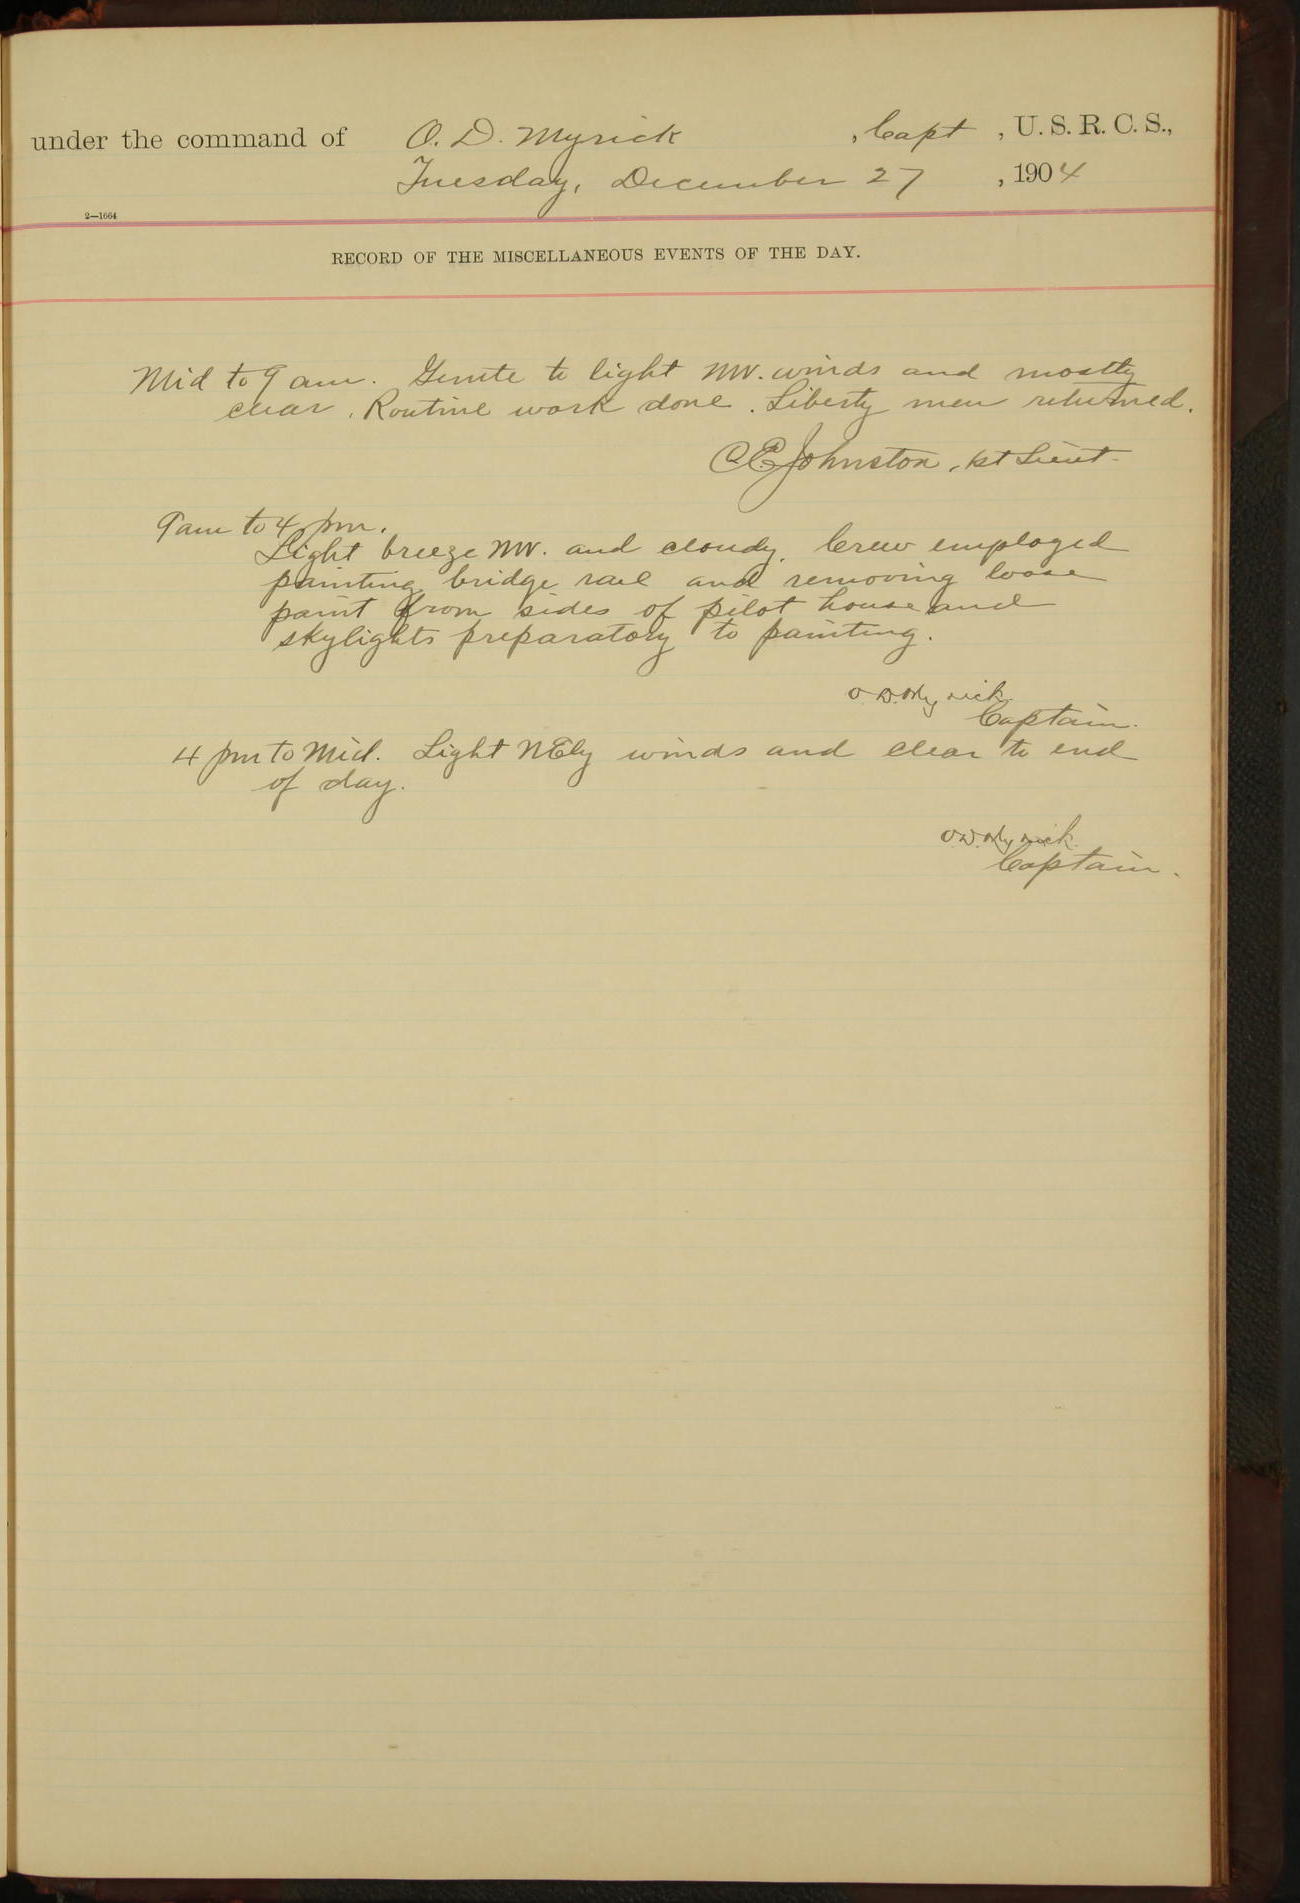 under the command of O. D. Myrick, Capt, U. S. R. C. S.,
Tuesday, December 27, 1904
2—1664
RECORD OF THE MISCELLANEOUS EVENTS OF THE DAY.
Mid to 9 am. Gentle to light NW. winds and mostly
clear. Routine work done. Liberty men returned.
C E Johnston, 1st Lieut.
9 am to 4 pm.
Light breeze NW. and cloudy. Crew employed
painting bridge rail and removing loose
paint from sides of pilot house and
skylights preparatory to painting.
O. D. Myrick
Captain.
4 pm to Mid. Light NEly winds and clear to end
of day.
O. D. Myrick.
Captain.